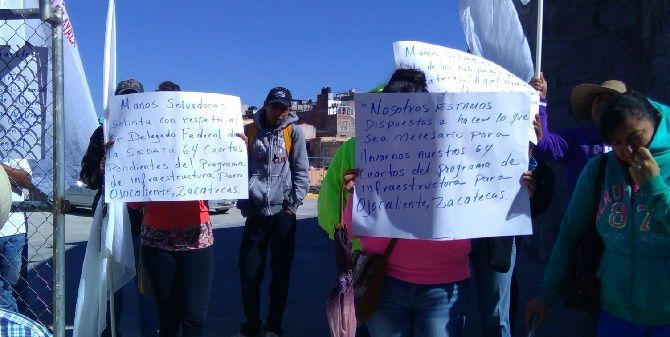 Manos Salvadoras
solicita con respeto a
Delegado Federal de
la SEDATU 64 Cuartos
Pendientes del Programa
de infraestructura Para
Ojocaliente, Zacatecas.
"Nosotros Estamos
Dispuestos a hacer lo que
sea necesario para
llevarnos nuestros 64
cuartos del Programa de
Infraestructura Para
Ojocaliente, Zacatecas.
Manos
87